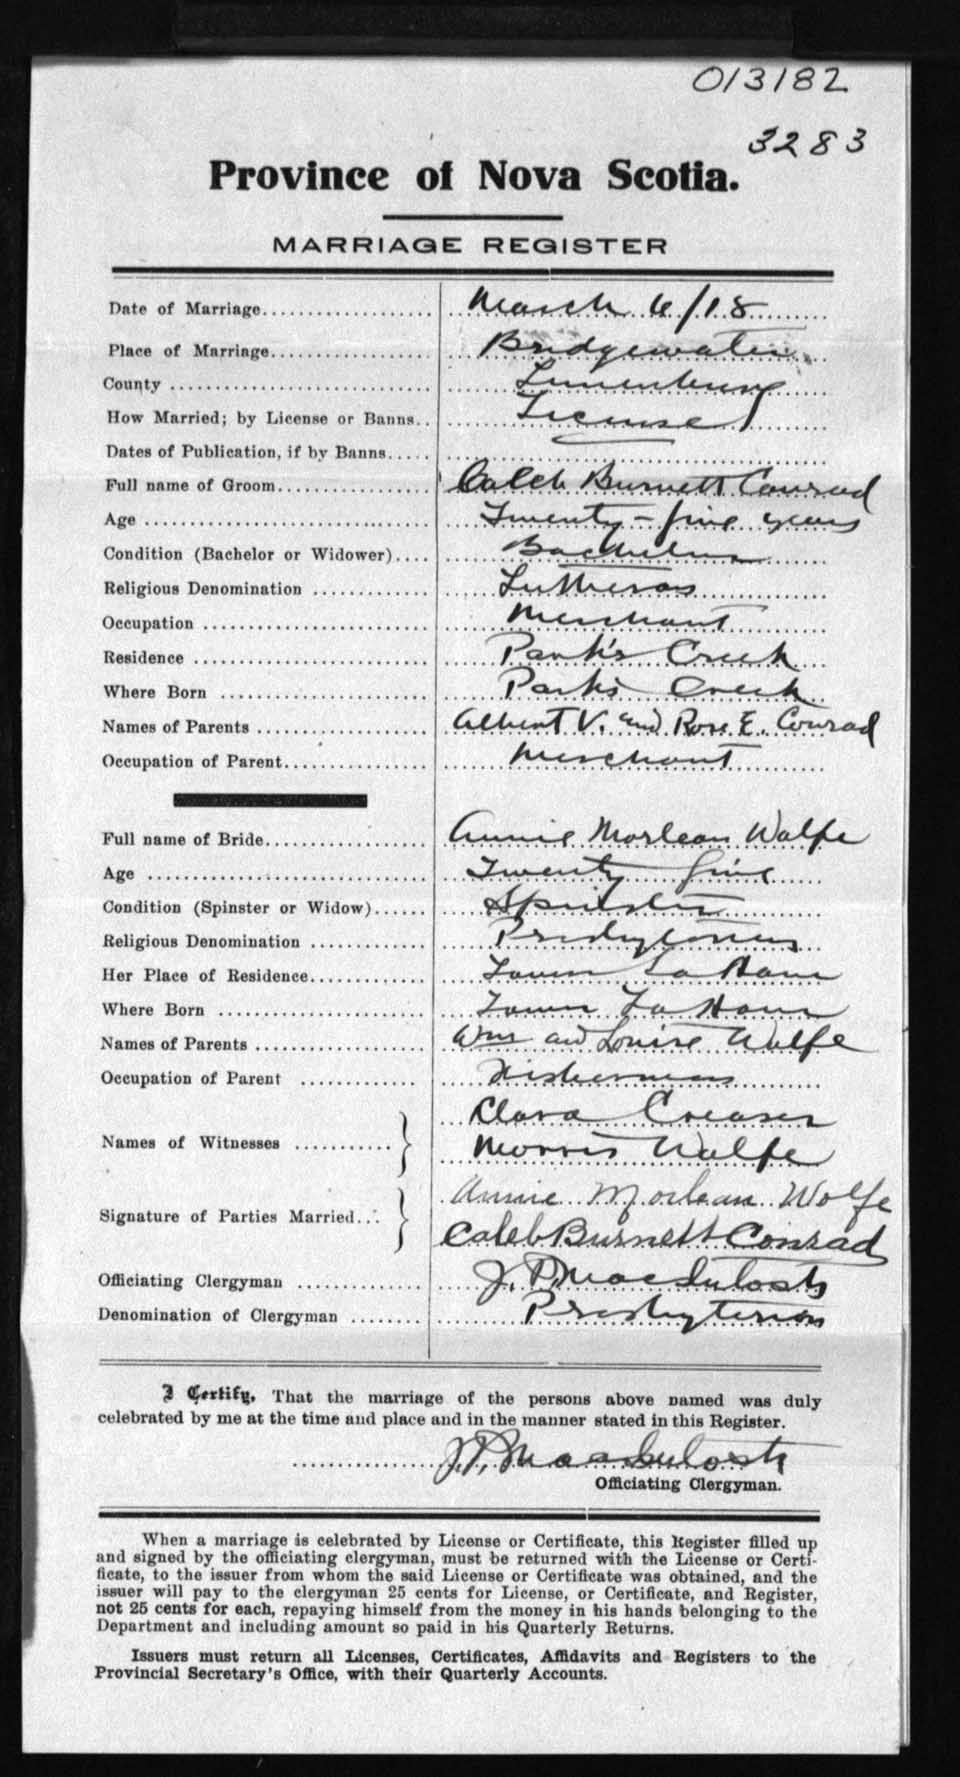 013182
3283
Province of Nova Scotia.
MARRIAGE REGISTER
Date of Marriage.................... March 6/18
Place of Marriage.................. Bridgewater
County .............................. Lunenburg
How Married; by License or Banns.. License
Dates of Publication, if by Banns.....
Full name of Groom.................. Caleb Burnett Conrad
Age ................................. Twenty-five years
Condition (Bachelor or Widower).... Bachelor
Religious Denomination ............. Lutheran
Occupation .......................... Merchant
Residence ........................... Park's Creek
Where Born ........................ Park's Creek
Names of Parents .................... Albert V. and Rose E. Conrad
Occupation of Parent................. Merchant
Full name of Bride................... Annie Morlean Wolfe
Age ................................. Twenty five
Condition (Spinster or Widow)...... Spinster
Religious Denomination ............. Presbyterian
Her Place of Residence............. Lower La Have
Where Born ........................ Lower La Have
Names of Parents .................... Wm and Louise Wolfe
Occupation of Parent ............. Fisherman
Clara Creaser
Names of Witnesses ...........
Morris Wolfe
Annie Morlean Wolfe
Signature of Parties Married...
Caleb Burnett Conrad
Officiating Clergyman .............. J. P. MacIntosh
Denomination of Clergyman ........ Presbyterian
I Certify, That the marriage of the persons above named was duly
celebrated by me at the time and place and in the manner stated in this Register.
J. P. MacIntosh
Officiating Clergyman.
When a marriage is celebrated by License or Certificate, this Register filled up
and signed by the officiating clergyman, must be returned with the License or Certi-
ficate, to the issuer from whom the said License or Certificate was obtained, and the
issuer will pay to the clergyman 25 cents for License, or Certificate, and Register,
not 25 cents for each, repaying himself from the money in his hands belonging to the
Department and including amount so paid in his Quarterly Returns.
Issuers must return all Licenses, Certificates, Affidavits and Registers to the
Provincial Secretary's Office, with their Quarterly Accounts.